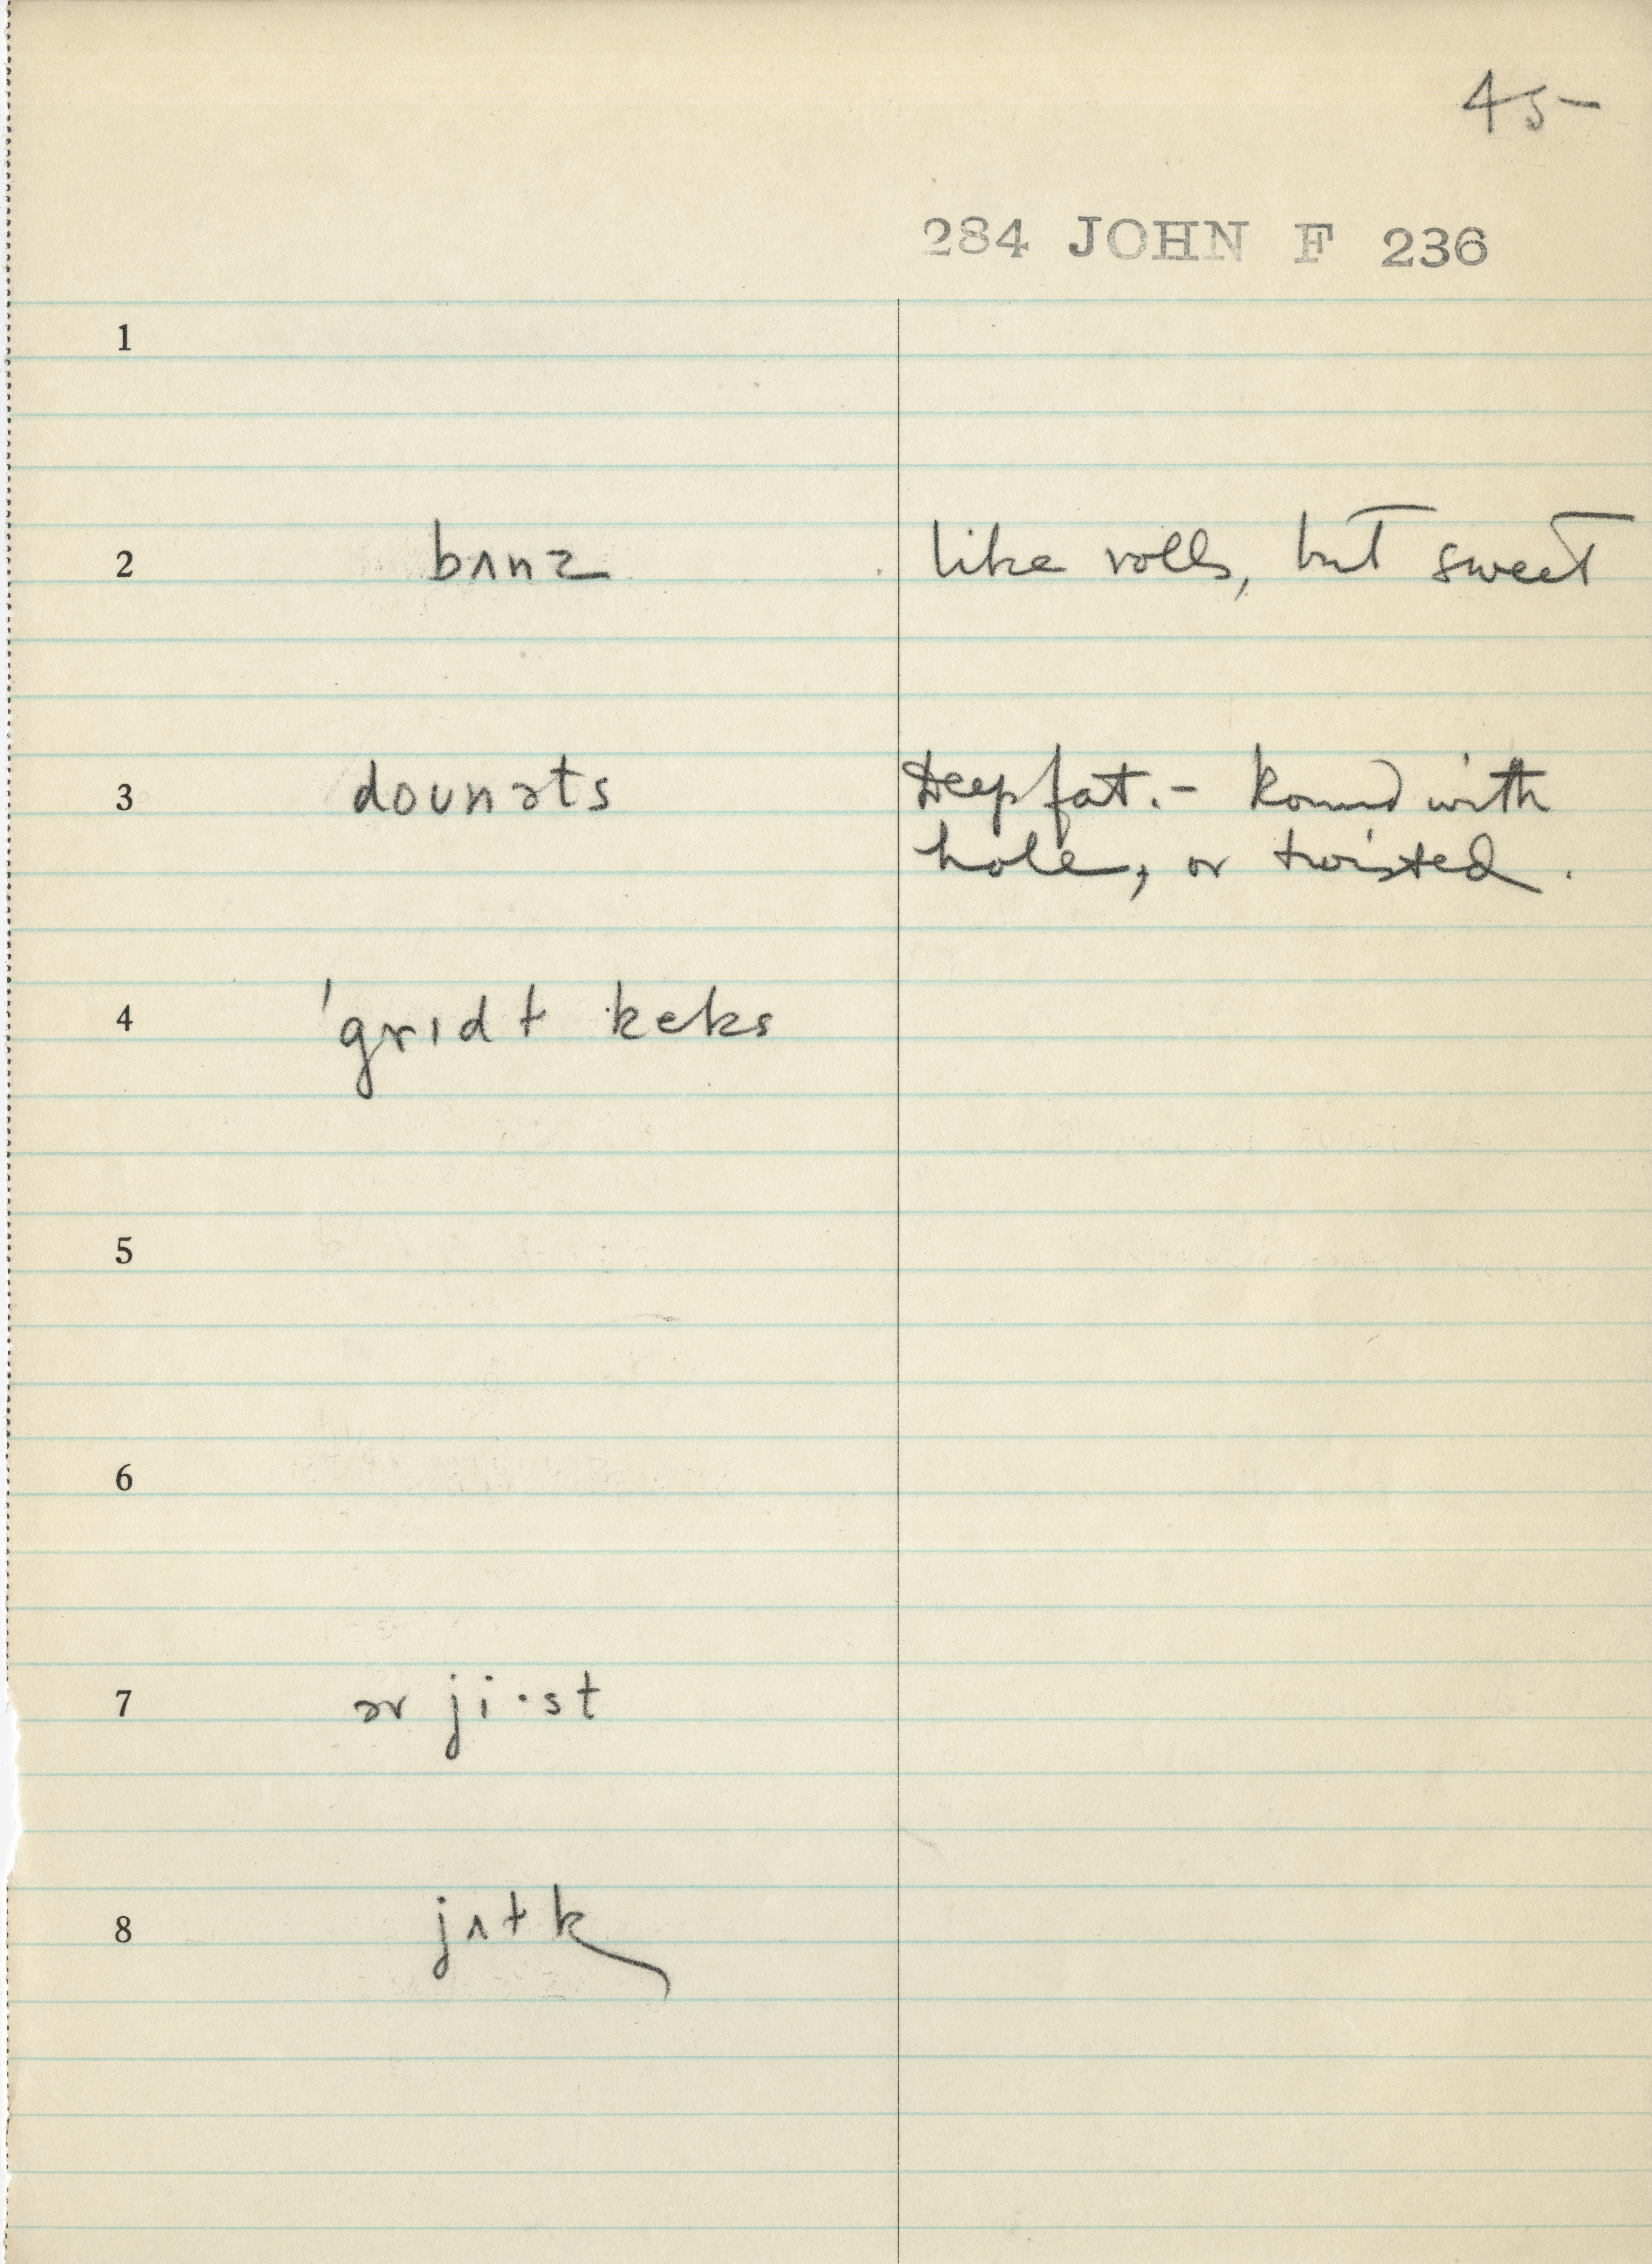 45
284 JOHN F 236
1
2 bʌnz like rolls, but sweet
3 dounəts Deep fat. – Round with
hole, or twisted.
4 ˈgrɪdɫ keks
5
6
7 ər ji·st
8 jʌɫk